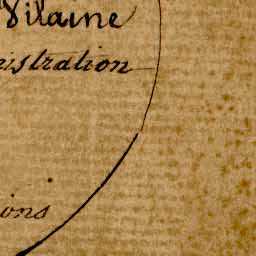 Vilaine
istration
ions